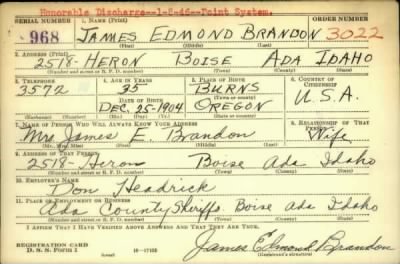 Honorable Discharge--1-8-46--Point System.
SERIAL NUMBER 1. NAME (Print) ORDER NUMBER
968 JAMES EDMOND BRANDON 3022
(First) (Middle) (Last)
2. ADDRESS (Print)
2518-HERON BOISE ADA IDAHO
(Number and street or R. F. D. number) (Town) (County) (State)
3. TELEPHONE 4. AGE IN YEARS 5. PLACE OF BIRTH 6. COUNTRY OF CITIZENSHIP
3572 35 BURNS
DATE OF BIRTH (Town or county)
DEC. 25, 1904 OREGON U.S.A.
(Exchange) (Number) (Mo.) (Day) (Yr.) (State or country)
7. NAME OF PERSON WHO WILL ALWAYS KNOW YOUR ADDRESS 8. RELATIONSHIP OF THAT PERSON
Mrs James E. Brandon Wife
(Mr., Mrs., Miss) (First) (Middle) (Last)
9. ADDRESS OF THAT PERSON
2518-Heron Boise Ada Idaho
(Number and street or R. F. D. number) (Town) (County) (State)
10. EMPLOYER'S NAME
Don Headrick
11. PLACE OF EMPLOYMENT OR BUSINESS
Ada County Sheriffs Boise Ada Idaho
(Number and street or R. F. D. number) (Town) (County) (State)
I AFFIRM THAT I HAVE VERIFIED ABOVE ANSWERS AND THAT THEY ARE TRUE.
REGISTRATION CARD
D. S. S. Form 1 (over) 16-17105 James Edmond Brandon
(Registrant's signature)